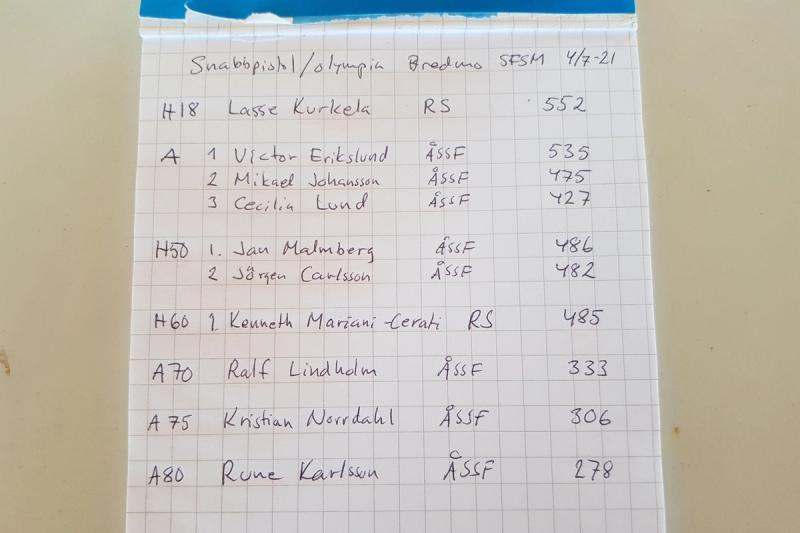 Snabbpistol/olympia Bredmo SFSM 4/7-21
H18 Lasse Kurkela RS 552
A 1 Victor Erikslund ÅSSF 535
2 Mikael Johansson ÅSSF 475
3 Cecilia Lund ÅSSF 427
H50 1. Jan Malmberg ÅSSF 486
2 Jörgen Carlsson ÅSSF 482
H60 1. Kenneth Mariani-Cerati RS 485
A70 Ralf Lindholm ÅSSF 333
A75 Kristian Norrdahl ÅSSF 306
A80 Rune Karlsson ÅSSF 278